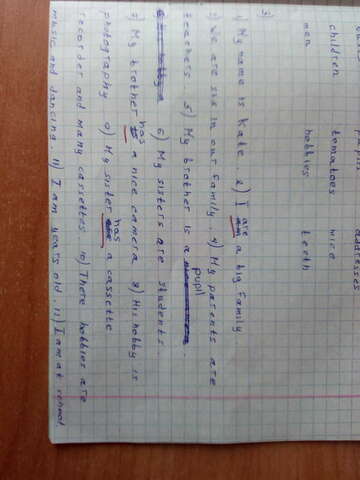 addresses
children tomatoes mice
men hobbies teeth
3)
1) My name is Kate. 2) I are a big family
3) We are six in our family. 4) My parents are
teachers. 5) My brother is a pupil.
6) My sisters are students.
7) My brother has a nice camera 8) His hobby is
photography 9) My sister has a cassette
recorder and many cassettes. 10) There hobbies are
music and dancing 11) I am years old. 12) I am at school.